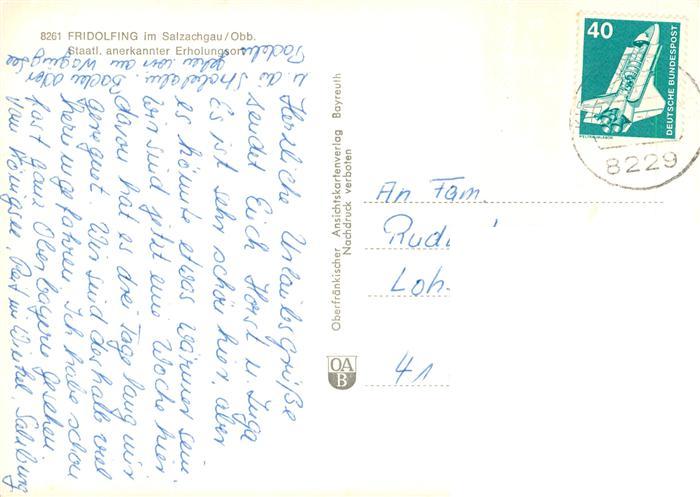 8261 FRIDOLFING im Salzachgau/Obb.
Staatl. anerkannter Erholungsort
Herzliche Urlaubsgrüße
sendet Euch Horst u. Inga
Es ist sehr schön hier, aber
es könnte etwas wärmer sein
Wir sind jetzt eine Woche hier
davon hat es drei Tage lang nur
geregnet. Wir sind deshalb viel
herumgefahren. Ich habe schon
fast ganz Oberbayern gesehen
vom Königsee, Reit im Winkel, Salzburg
u. die
gehen wir am Waginger See
Baden
Oberfränkischer Ansichtskartenverlag Bayreuth
Nachdruck verboten
OA
B
40
DEUTSCHE BUNDESPOST
8229
An Fam.
Rudi
Loh
41